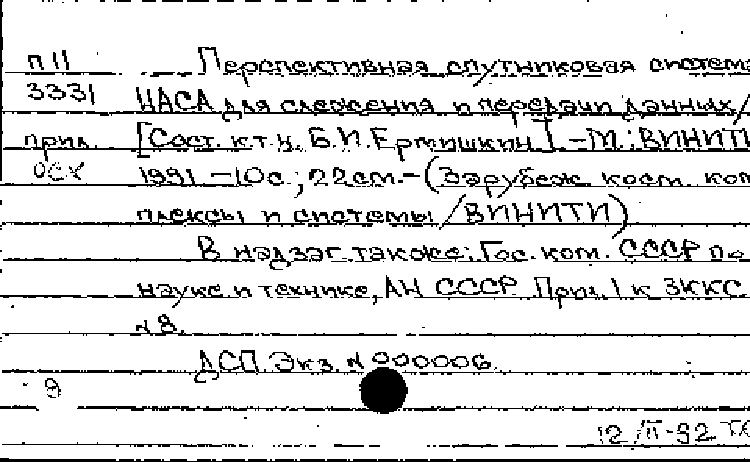 П 11 Перспективная спутниковая система
3331 НАСА для слежения и передачи данных/
прил. [Сост. к.т.н. Б.И.Ермишкин]. – М.: ВИНИТИ
ОСХ 1991. – 10с.; 22см. – (Зарубеж. косм. ком
плексы и системы /ВИНИТИ)
В надзаг. также: Гос. ком. СССР по
науке и технике, АН СССР. Прил. 1 к ЗККС
N 8.
ДСП Экз. N 000006.
9
12/II-92